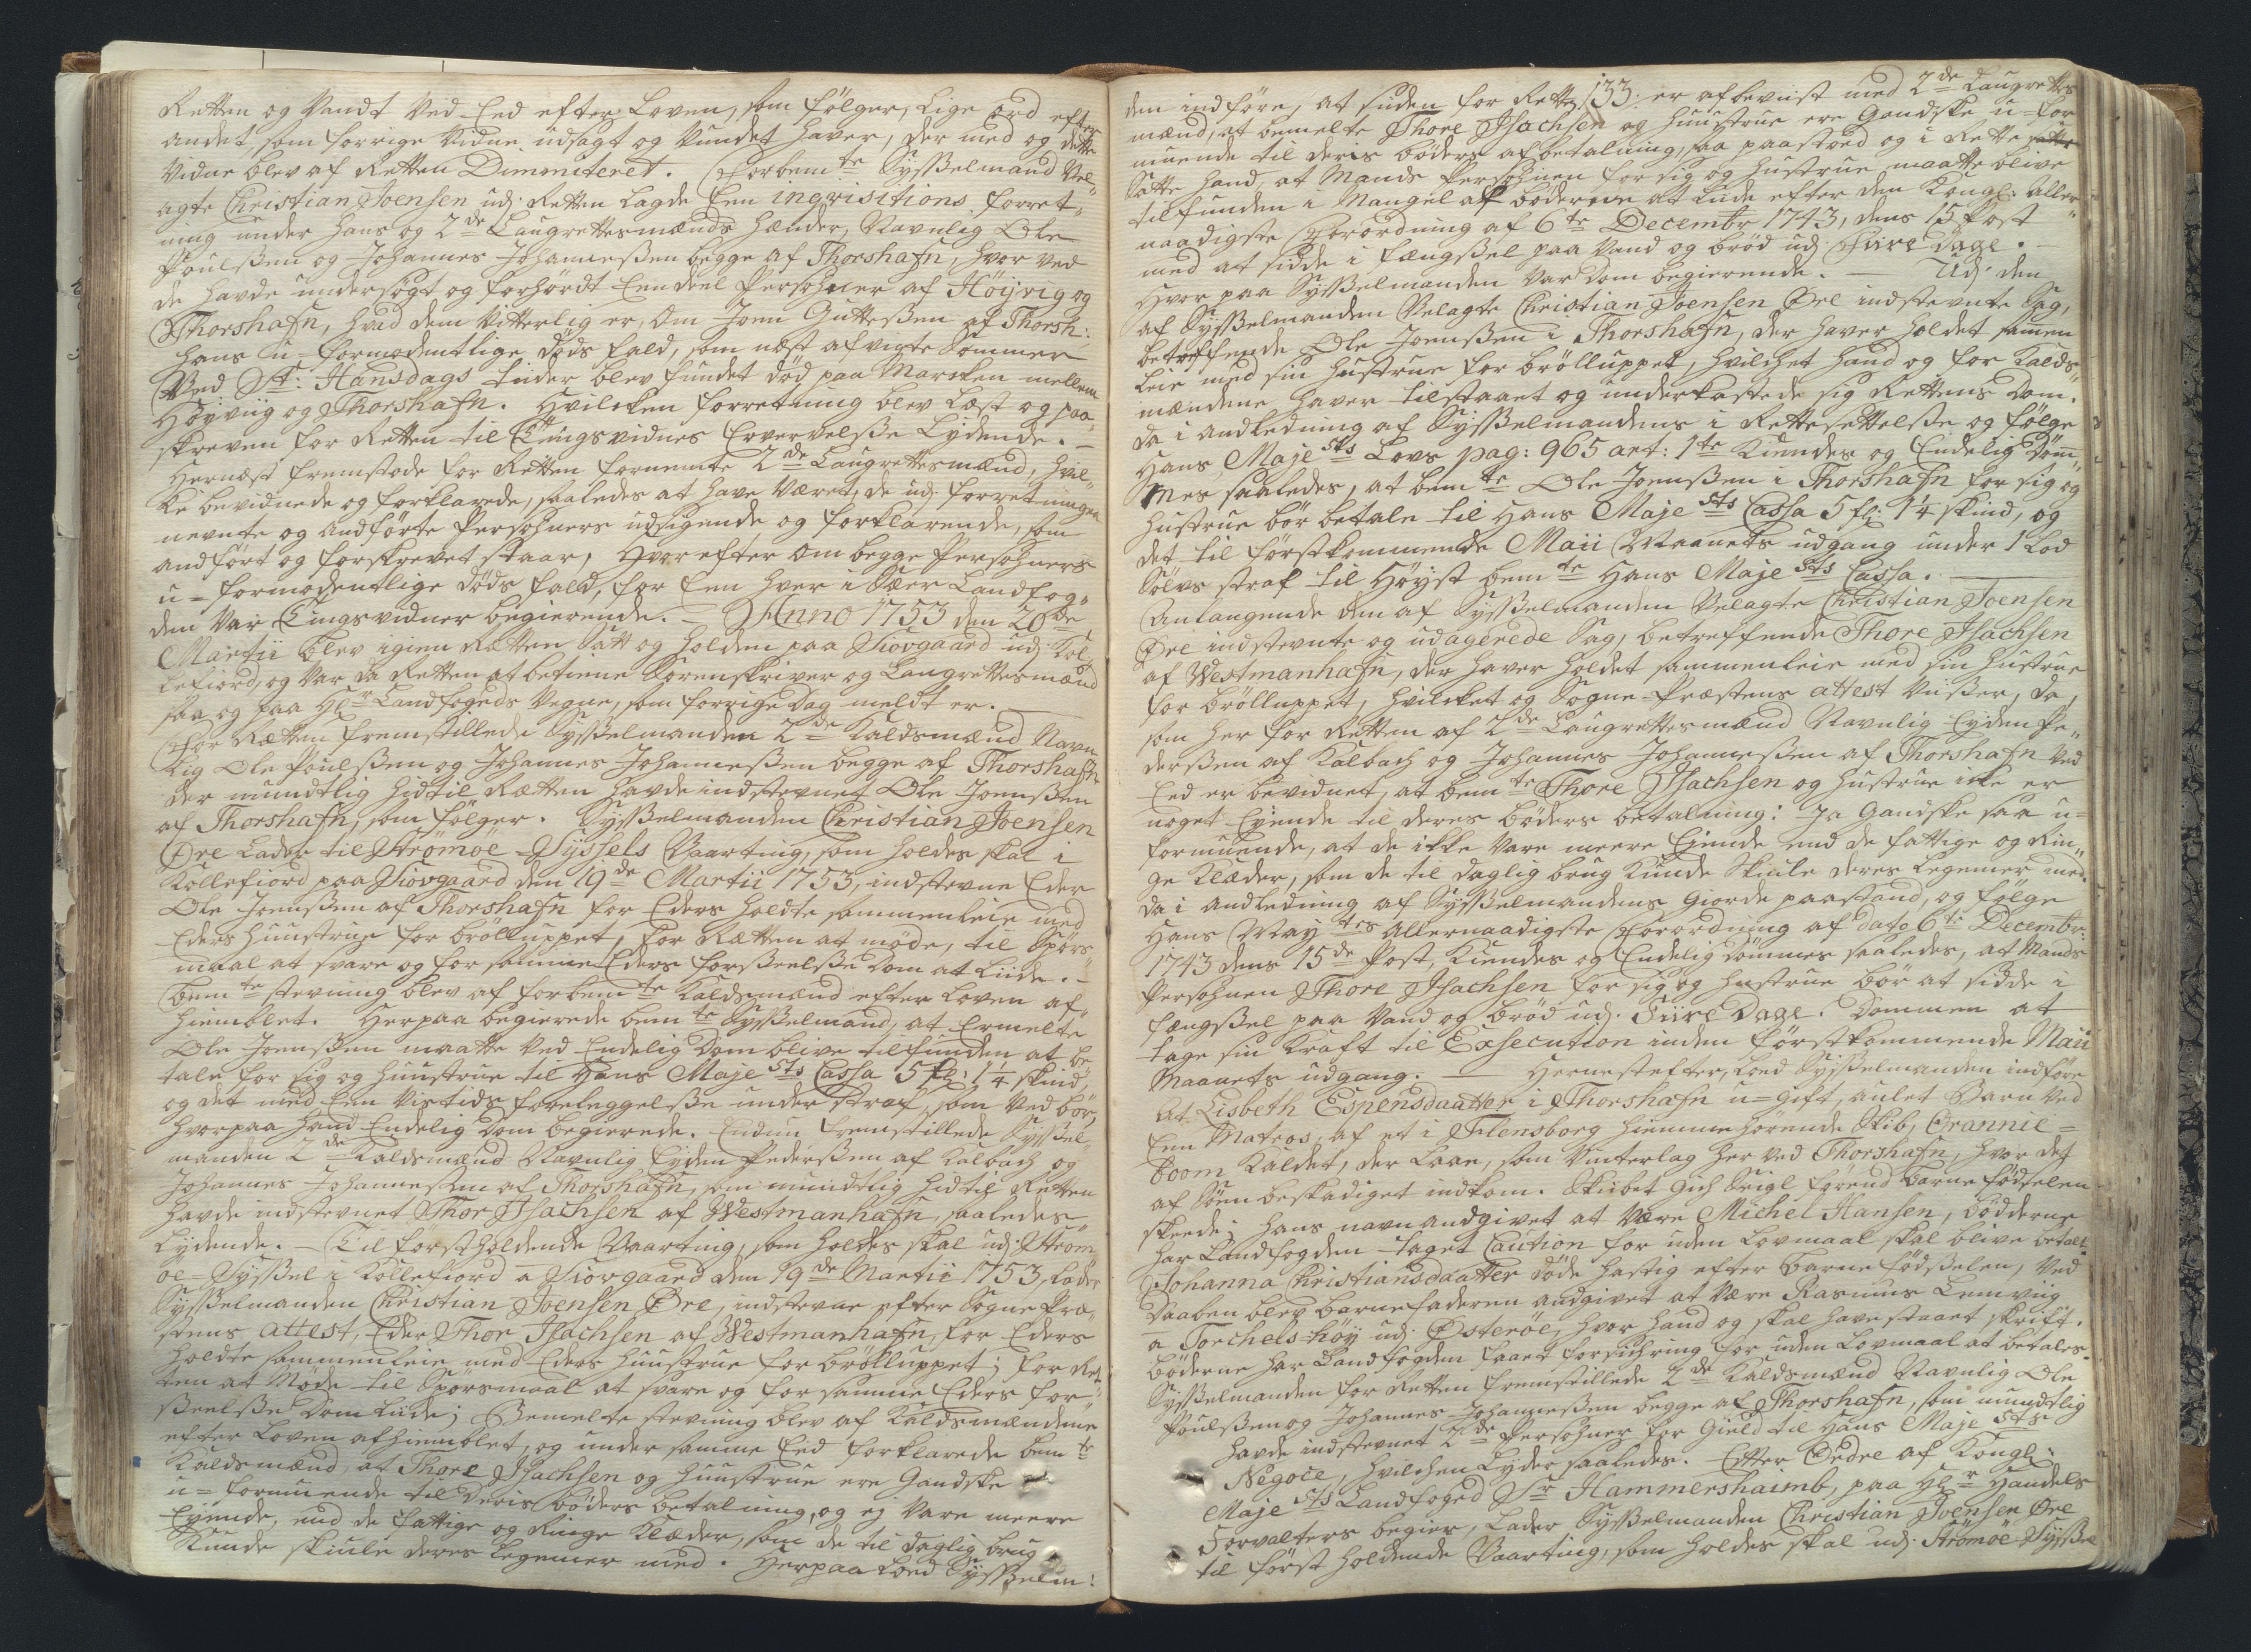 Retten og Vandt Ved Eed efter Loven, som følger, Lige ord efter
andet, som forrige Vidne udsagt og Vundet haver, der med og dette
Vidne blev af Retten Dimmiteret. Forbemte Sysselmand Vel„
agte Christian Joensen udj Retten Lagde Een inqvisitions forret„
ning under hans og 2de Laugrettesmænds hænder, Navnlig Ole
Poulsen og Johannes Johannesen begge af Thorshafn, hvor ved
de havde undersøgt og forhørdt Eendeel Persohner af Höijvig og
Thorshafn, hvad dem Vitterlig er, Om Joen Guttesen af Thorsh:
hans u-formodentlige døds fald, som næst afvigte Sommer
Ved St: Hansdags tiider blev fundet død paa Marcken mellem
Höyviig og Thorshafn. Hvilcken forretning blev Læst og paa„
skreven for Retten til Tingsvidnes Erhvervelse Lydende. —
Hernæst fremstode for Retten fornemte 2de Laugrettesmænd, hvil„
ke bevidnede og forklarede, saaledes at have Været, de udj forretningen
nevnte og Andførte Persohners udsigende og forklarende, som
andført og forskrevet staar, Hvorefter Om begge Persohners
u-formodentlige døds fald, for Een hver i Sær Landfog„
den Var Tingsvidner begierende. — Anno 1753 den 20de
Martii blev igien Rætten Satt og holden paa Siovgaard udj Kol„
lefiord, og Var da Retten at betiene Sorenskriver og Laugrettesmænd
saa og paa Hr Landfogeds Vegne, som forrige Dag meldt er.
For Rætten fremstillede Sysselmanden 2de Kaldsmænd Navn„
Lig Ole Poulsen og Johannes Johannesen begge af Thorshafn
der mundtlig hidtil Rætten havde indstevnet Ole Joensen
af Thorshafn, som følger. Sysselmanden Christian Joensen
Øre Lader til Strömöe-Syssels Vaarting, som holdes skal i
Kollefiord paa Siovgaard den 19de Martii 1753, indstevne Eder
Ole Joensen af Thorshafn for Eders holdte sammenleie med
Eders Huustrue for brölluppet, for Rætten at møde, til Spörs„
maal at svare og for samme Eders forseelse Dom at Liide. —
Bemte stevning blev af forbemte Kaldsmænd efter Loven af„
hiemblet. Herpaa begierede bemte Sysselmand, at Ermelte
Ole Joensen maatte Ved Endelig Dom blive tilfunden at be„
tale for sig og Huustrue til Hans Majests Cassa 5 fl: 1¼ skind,
og det med Een Vis tids foreleggelse under straf, som Ved bør,
hvorpaa hand Endelig Dom begierede. Endnu fremstillede Syssel„
manden 2de Kaldsmænd Navnlig Eyden Pedersen af Kalbach og
Johannes Johannesen af Thorshafn, som mundtlig hidtil Retten
havde indstevnet Thor Jsachsen af Westmanhafn, saaledes
Lydende. — Til første holdende Vaarting, som holdes skal udj Ström„
öe-Syssel i Kollefiord a Siovgaard den 19de Martii 1753, Lader
Sysselmanden Christian Joensen Øre, indstevne efter Sogne Præ„
stens attest, Eder Thor Jsachsen af Westmanhafn, for Eders
holdte sammenleie med Eders Huustrue for brölluppet; for Ret„
ten at Møde til Spörsmaal at svare og for samme Eders for„
seelse Dom Liide; Bemelte stevning blev af Kaldsmændene
efter Loven afhiemblet, og under samme Eed forklarede bemte
Kaldsmænd, at Thore Jsachsen og Huustrue ere Gandske
u-formuende til deris bøders betalning, og ej Vare meere
Eyende, end de fattige og Ringe Klæder, som de til daglig brug
Kunde skiule deres Legemer med. Herpaa Loed Sysselm:
133.
den indføre, at siden for Retten er afbeviist med 2de Laugrettes„
mænd, at bemelte Thore Jsachsen og huustrue ere Gandske u-for„
muende til deris bøders afbetalning, saa paastoed og i Rette
Satte hand, at Mands Persohnen for sig og Hustrue maatte blive
tilfunden i Mangel af bøderne at Liide efter den Kongl: Aller„
naadigste Forordning af 6te Decembr 1743, dens 15 Post
med at sidde i fængsel paa Vand og brød udj Fiire Dage. —
Hvor paa Sysselmanden Var Dom begierende. — Udj den
af Sysselmanden Velagte Christian Joensen Øre indstevnte Sag,
betreffende Ole Joensen i Thorshafn, der haver holdet samen„
leie med sin Hustrue for brölluppet, hvilchet hand og for Kalds„
mændene haver tilstaaet og underkastede sig Rettens Dom.
da i andledning af Sysselmandens i Rettesettelse og følge
Hans Majests Lovs pag: 965 art: 1te Kiendes og Endelig Döm„
mes saaledes, at bemte Ole Joensen i Thorshafn for sig og
Hustrue bör betale til Hans Majests Cassa 5 fl: 1¼ skind, og
det til førstkommende Maii Maanets udgang under 1 Lod
Sølvs straf til Høyst bemte Hans Majests Cassa. —
Anlangende den af Sysselmanden Velagte Christian Joensen
Øre indstevnte og udagerede Sag, betreffende Thore Jsachsen
af Westmanhafn, der haver holdet sammenleie med sin Hustrue
for brölluppet, hvilcket og Sogne-Præstens attest Viiser, da,
som her for Retten af 2de Laugrettesmænd Navnlig Eyden Pe„
dersen af Kalbach og Johannes Johannesen af Thorshafn Ved
Eed er bevidnet, at bemte Thore Jsachsen og Hustrue icke er
noget Eyende til deres bøders betalning: Ja Gandske saa u-
formuende, at de ikke Vare meere Eiende end de fattige og Rin„
ge Klæder, som de til daglig brug Kunde Skiule deres Legemer med.
da i andledning af Sysselmandens Giorde paastand, og følge
Hans Mayts Allernaadigste Forordning af dato 6te Decembr:
1743 dens 15de Post, Kiendes og Endelig Dømmes saaledes, at Mands
Persohnen Thore Jsachsen for sig og Hustrue bør at sidde i
fængsel paa Vand og brød udj Fiire Dage. Dommen at
tage sin Kraft til Exsecution inden førstkommende Maii
Maanets udgang. — Hernest efter, Loed Sysselmanden indføre
At Lisbeth Espensdaatter i Thorshafn u-gift, aulet Barn Ved
Een Matros, af et i Flensborg hiemmehørende Skib, Orannie-
Boom Kaldet, der Laae, som Vinterlag her ved Thorshafn, hvor det
af Søen beskadiget indkom. Skibet Gich Seigl førend barne fødselen
skeede. Hans navn andgivet at Være Michel Hansen, bødderne
har Landfogden taget Caution for uden Lovmaal skal blive betalt.
Johanna Christiansdaatter døde hastig efter barne fødselen, Ved
Daaben blev barnefaderen andgivet at Være Rasmus Lemviig
a Torchels-höy udj Østeröe, hvor hand og skal have staaet skrift.
Bøderne har Landfogden faaet forsichring for uden Lovmaal at betales.
Sysselmanden for Retten fremstillede 2de Kaldsmænd Navnlig Ole
Poulsen og Johannes Johannesen begge af Thorshafn, som mundtlig
havde indstevnet 2de Persohner for Gield til Hans Majests
Negoce, hvilchen Lyder saaledes. Efter Ordre af Kongl:
Majests Landfoged Sr Hammershaimb, paa Hr Handels
Forvalters begier, Lader Sysselmanden Christian Joensen Øre
til først holdende Vaarting, som holdes skal udj Strömöe Syssel